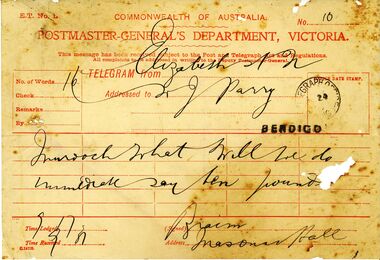 E.T. No. 1. COMMONWEALTH OF AUSTRALIA. No. 10
POSTMASTER-GENERAL'S DEPARTMENT, VICTORIA.
This message has been received subject to the Post and Telegraph Act and Regulations.
All complaints to be addressed in writing to the Deputy Postmaster-General.
TELEGRAM from Elizabeth St
No. of Words 16 STAMP.
Check Addressed to J Parry
Remarks
By BENDIGO
Murdoch what will he do
immediate say ten pounds
Time Lodged (Signed)
Time Received Address Masonic Hall